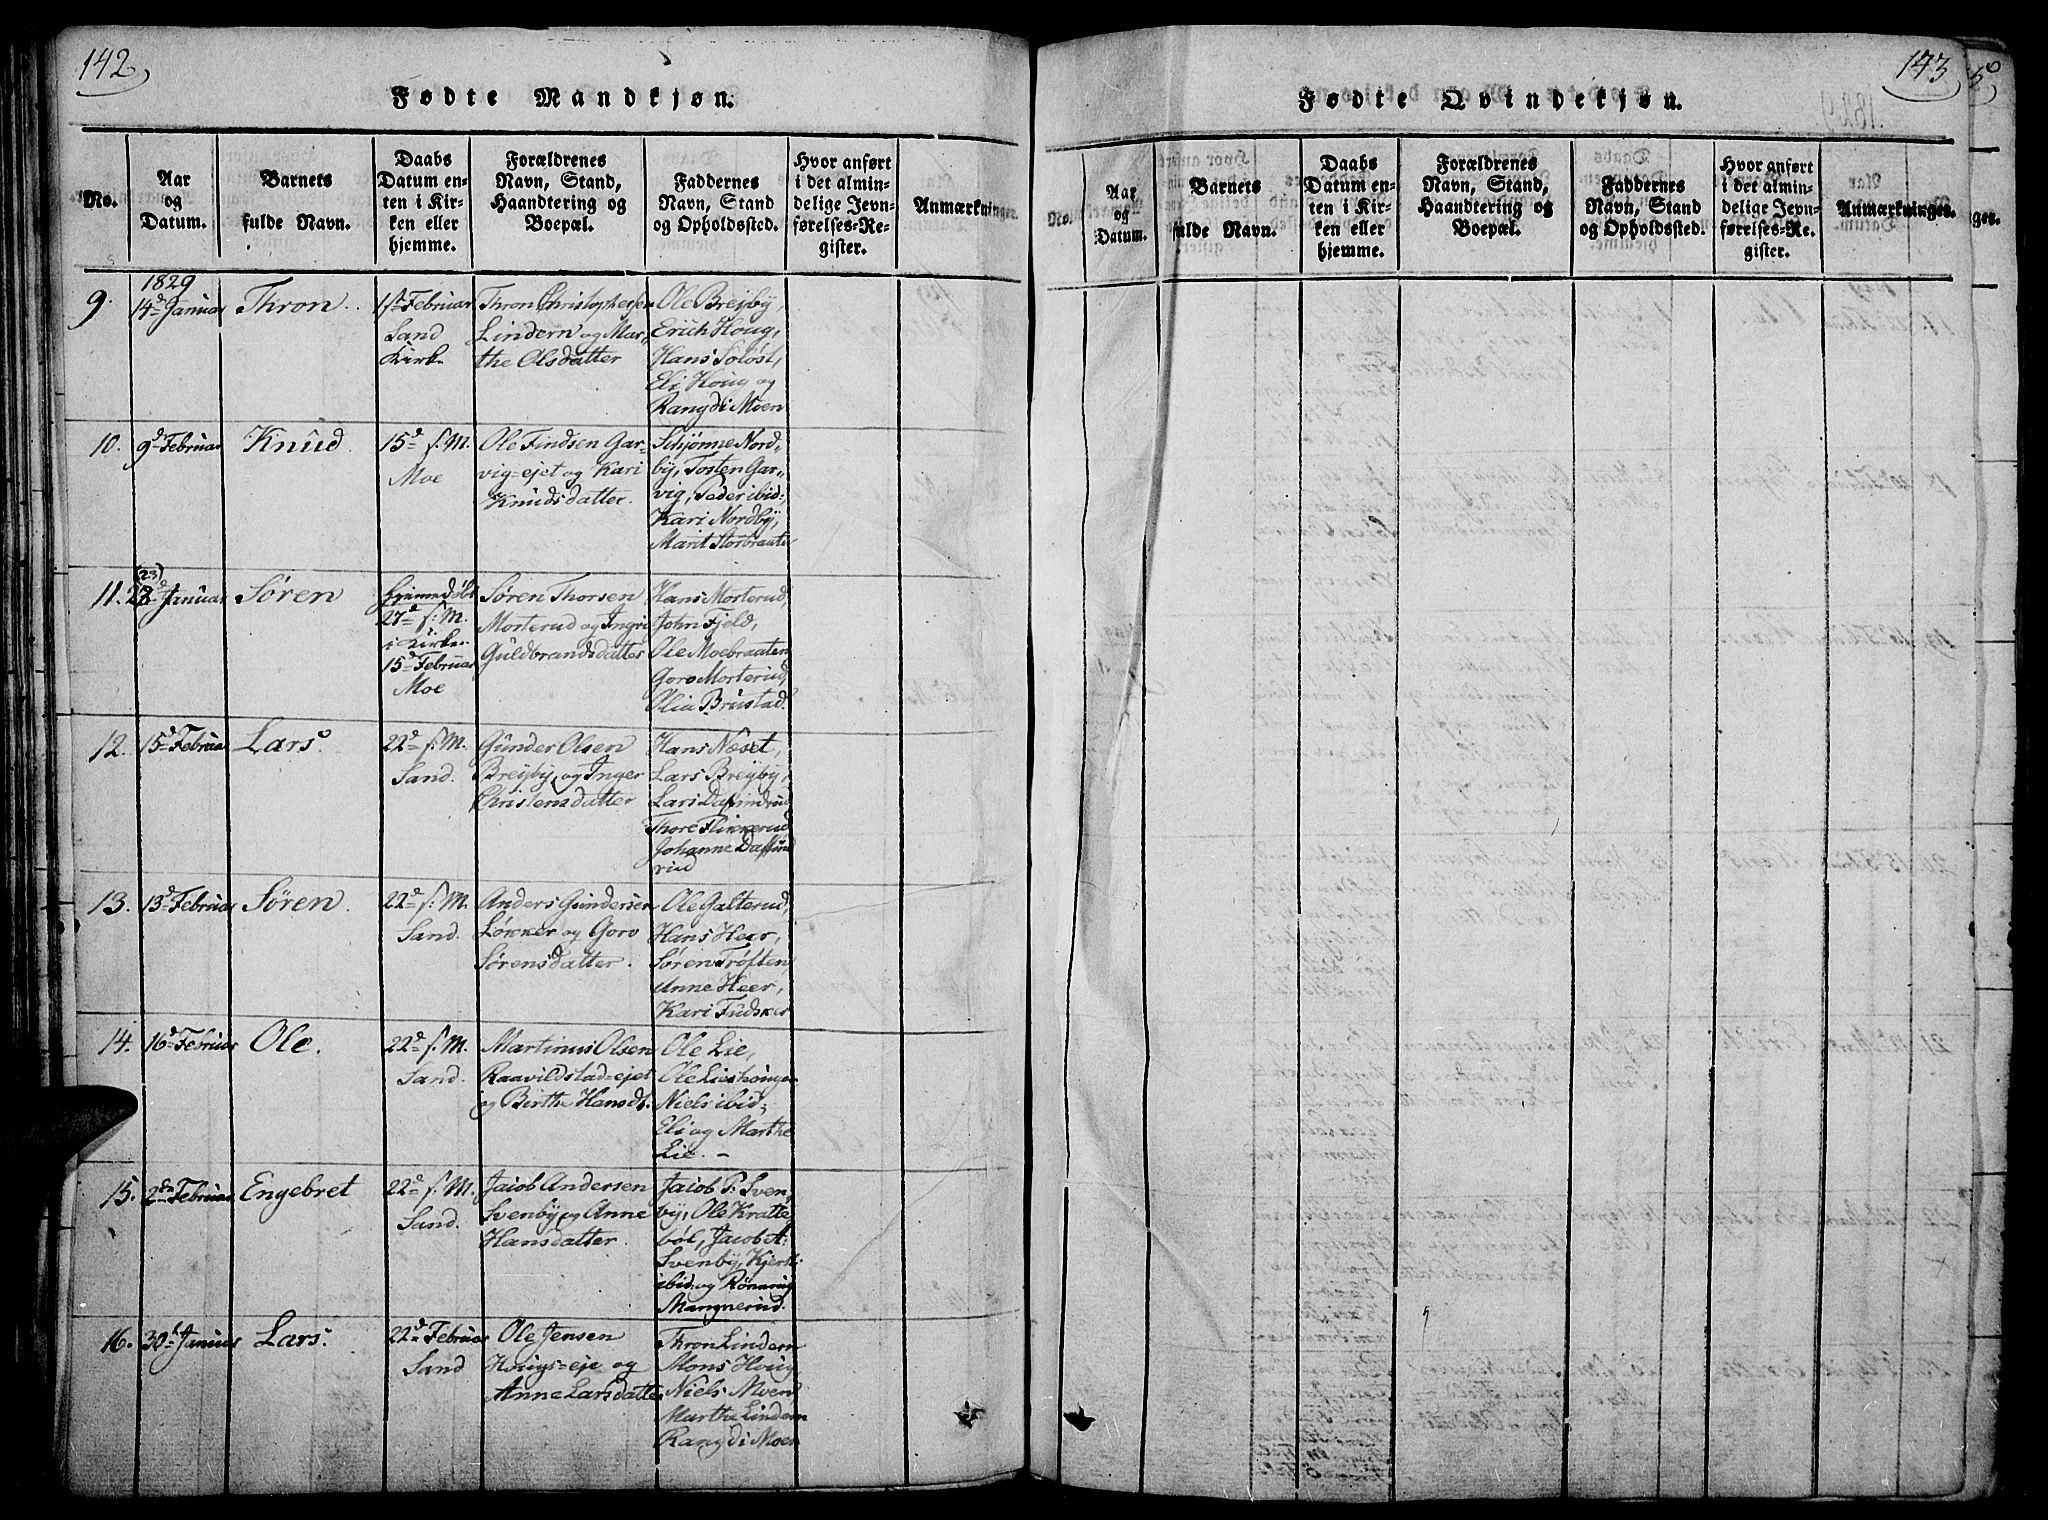 142
Fødte Mandkjøn.
No.
Aar
og
Datum.
Barnets
fulde Navn.
Daabs
Datum en-
ten i Kir-
ken eller
hjemme.
Forældrenes
Navn, Stand,
Haandtering og
Boepæl.
Faddernes
Navn, Stand
og Opholdssted.
Hvor anført
i det almin-
delige Jevn-
førelses-Re-
gister.
Anmærkninger.
1829
9.
14d Januar
Thron.
1st Februar
Sand
Kirke
Thron Christophersen
Lindern og Mar-
the Olsdatter
Ole Breyby,
Erich Houg,
Hans Soløst,
Eli Houg og
Rangdi Moen
10.
9d Februar
Knud.
15d s. M.
Moe
Ole Findsen Gar-
vig-ejet og Kari
Knudsdatter.
Schjønne Nord-
by, Tosten Gar-
vig, Peder ibid:,
Kari Nordby,
Marit Storbraate
11.
(23)
Januar
Søren
Hjemmedøbt
27d s. M.
i Kirke
15d Februar
Moe
Søren Thorsen
Morterud og Ingri
Guldbrandsdatter
Hans Morterud,
John Fjeld,
Ole Moebraaten
Goro Morterud,
Olia Brustad.
12.
15d Februar
Lars.
22d s. M.
Sand.
Gunder Olsen
Breyby og Inger
Christensdatter
Hans Næset,
Lars Breyby,
Thore Flikkerud
Johanne
rud
13.
13d Februar
Søren.
22d s. M.
Sand.
Anders Gundersen
Løkker og Goro
Sørensdatter.
Ole Galterud,
Hans Heer,
Søren Trøften,
Anne Heer,
Kari Fudsker
14.
16d Februar
Ole.
22d s. M.
Sand.
Martinus Olsen
Raavildstad-ejet
og Birthe Hansdt.
Ole Lie,
Niels ibid:
Eli og Marthe
Lie. -
15.
2den Februar
Engebret
22d s. M.
Sand.
Jacob Andersen
Svenby og Anne
Hansdatter.
Jacob P. Sven-
by, Ole Kratte-
bøl, Jacob A.
Svenby, Kjersti
ibid. og Rønnaug
Mangnerud.
16.
30d Januar
Lars.
22d Februar
Sand
Ole Jensen
Hougs-eje og
Anne Larsdatter
Thron Lindern
Mons Houg
Niels Moen
Marthe Lindern
Rangdi Moen
143
Fødte Qvindekjøn.
No.
Aar
og
Datum.
Barnets
fulde Navn.
Daabs
Datum en-
ten i Kir-
ken eller
hjemme.
Forældrenes
Navn, Stand,
Haandtering og
Boepæl.
Faddernes
Navn, Stand
og Opholdssted.
Hvor anført
i det almin-
delige Jevn-
førelses-Re-
gister.
Anmærkninger.